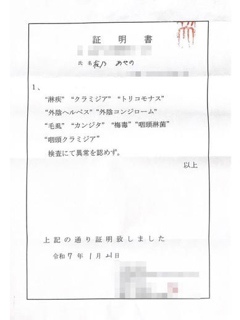 証明書
氏名
1、
“淋疾” “クラミジア” “トリコモナス”
“外陰ヘルペス” “外陰コンジローム”
“毛虱” “カンジタ” “梅毒” “咽頭淋菌”
“咽頭クラミジア”
検査にて異常を認めず。
以上
上記の通り証明致しました
令和7年1月21日